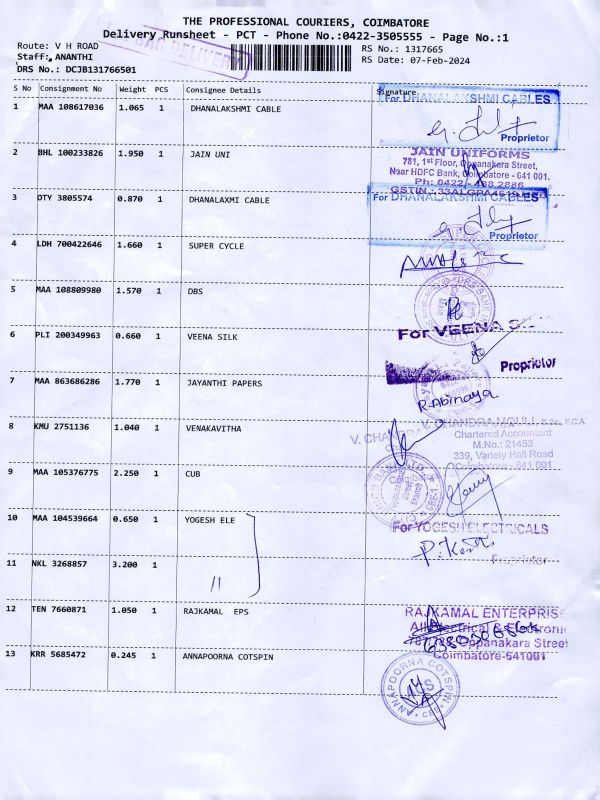 THE PROFESSIONAL COURIERS, COIMBATORE
Delivery Runsheet - PCT - Phone No.:0422-3505555 - Page No.:1
Route: V H ROAD
RS No.: 1317665
Staff: ANANTHI
RS Date: 07-Feb-2024
DRS No.: DCJB131766501
S No Consignment No Weight PCS Consignee Details Signature
For DHANALAKSHMI CABLES
1 MAA 108617036 1.065 1 DHANALAKSHMI CABLE
Proprietor
2 BHL 100233826 1.950 1 JAIN UNI
JAIN UNIFORMS
781, 1st Floor, Oppanakara Street,
Near HDFC Bank, Coimbatore - 641 001.
Ph: 0422-
For DHANALAKSHMI CABLES
3 DTY 3805574 0.870 1 DHANALAXMI CABLE
Proprietor
4 LDH 700422646 1.660 1 SUPER CYCLE
5 MAA 108809980 1.570 1 DBS
For VEENA
6 PLI 200349963 0.660 1 VEENA SILK
Proprietor
7 MAA 863686286 1.770 1 JAYANTHI PAPERS
R.Abinaya
8 KMU 2751136 1.040 1 VENAKAVITHA
V. CHANDRA MOULI, B.Sc., F.C.A
Chartered Accountant
M.No.: 21453
339, Variety Hall Road
Coimbatore - 641 001
9 MAA 105376775 2.250 1 CUB
10 MAA 104539664 0.650 1 YOGESH ELE
For YOGESH ELECTRICALS
11 NKL 3268857 3.200 1 11
Proprietor
12 TEN 7660871 1.050 1 RAJKAMAL EPS
RAJKAMAL ENTERPRIS
All Electrical & Electroni
Oppanakara Street
Coimbatore-641001
13 KRR 5685472 0.245 1 ANNAPOORNA COTSPIN
ANNAPOORNA COTSPIN
CBE